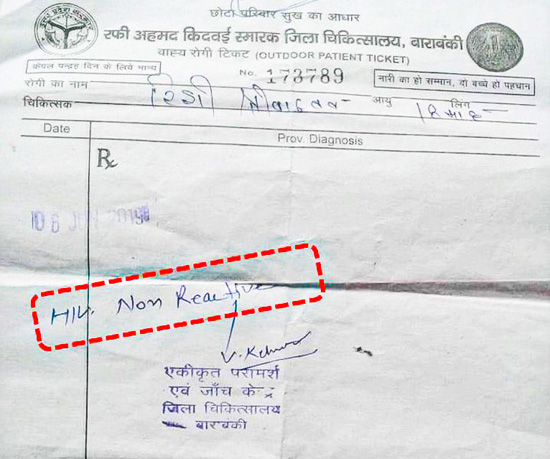 छोटा परिवार सुख का आधार
रफी अहमद किदवई स्मारक जिला चिकित्सालय, बाराबंकी
वाह्य रोगी टिकट (OUTDOOR PATIENT TICKET)
केवल पन्द्रह दिन के लिये मान्य
No. 173789
नारी का हो सम्मान, दो बच्चे हों पहचान
रोगी का नाम
आयु
लिंग
चिकित्सक
Date
Prov. Diagnosis
Rx
06 JUN 2019
HIV. Non Reactive
एकीकृत परामर्श
एवं जाँच के
जिला चिकित्सालय
बाराबंकी